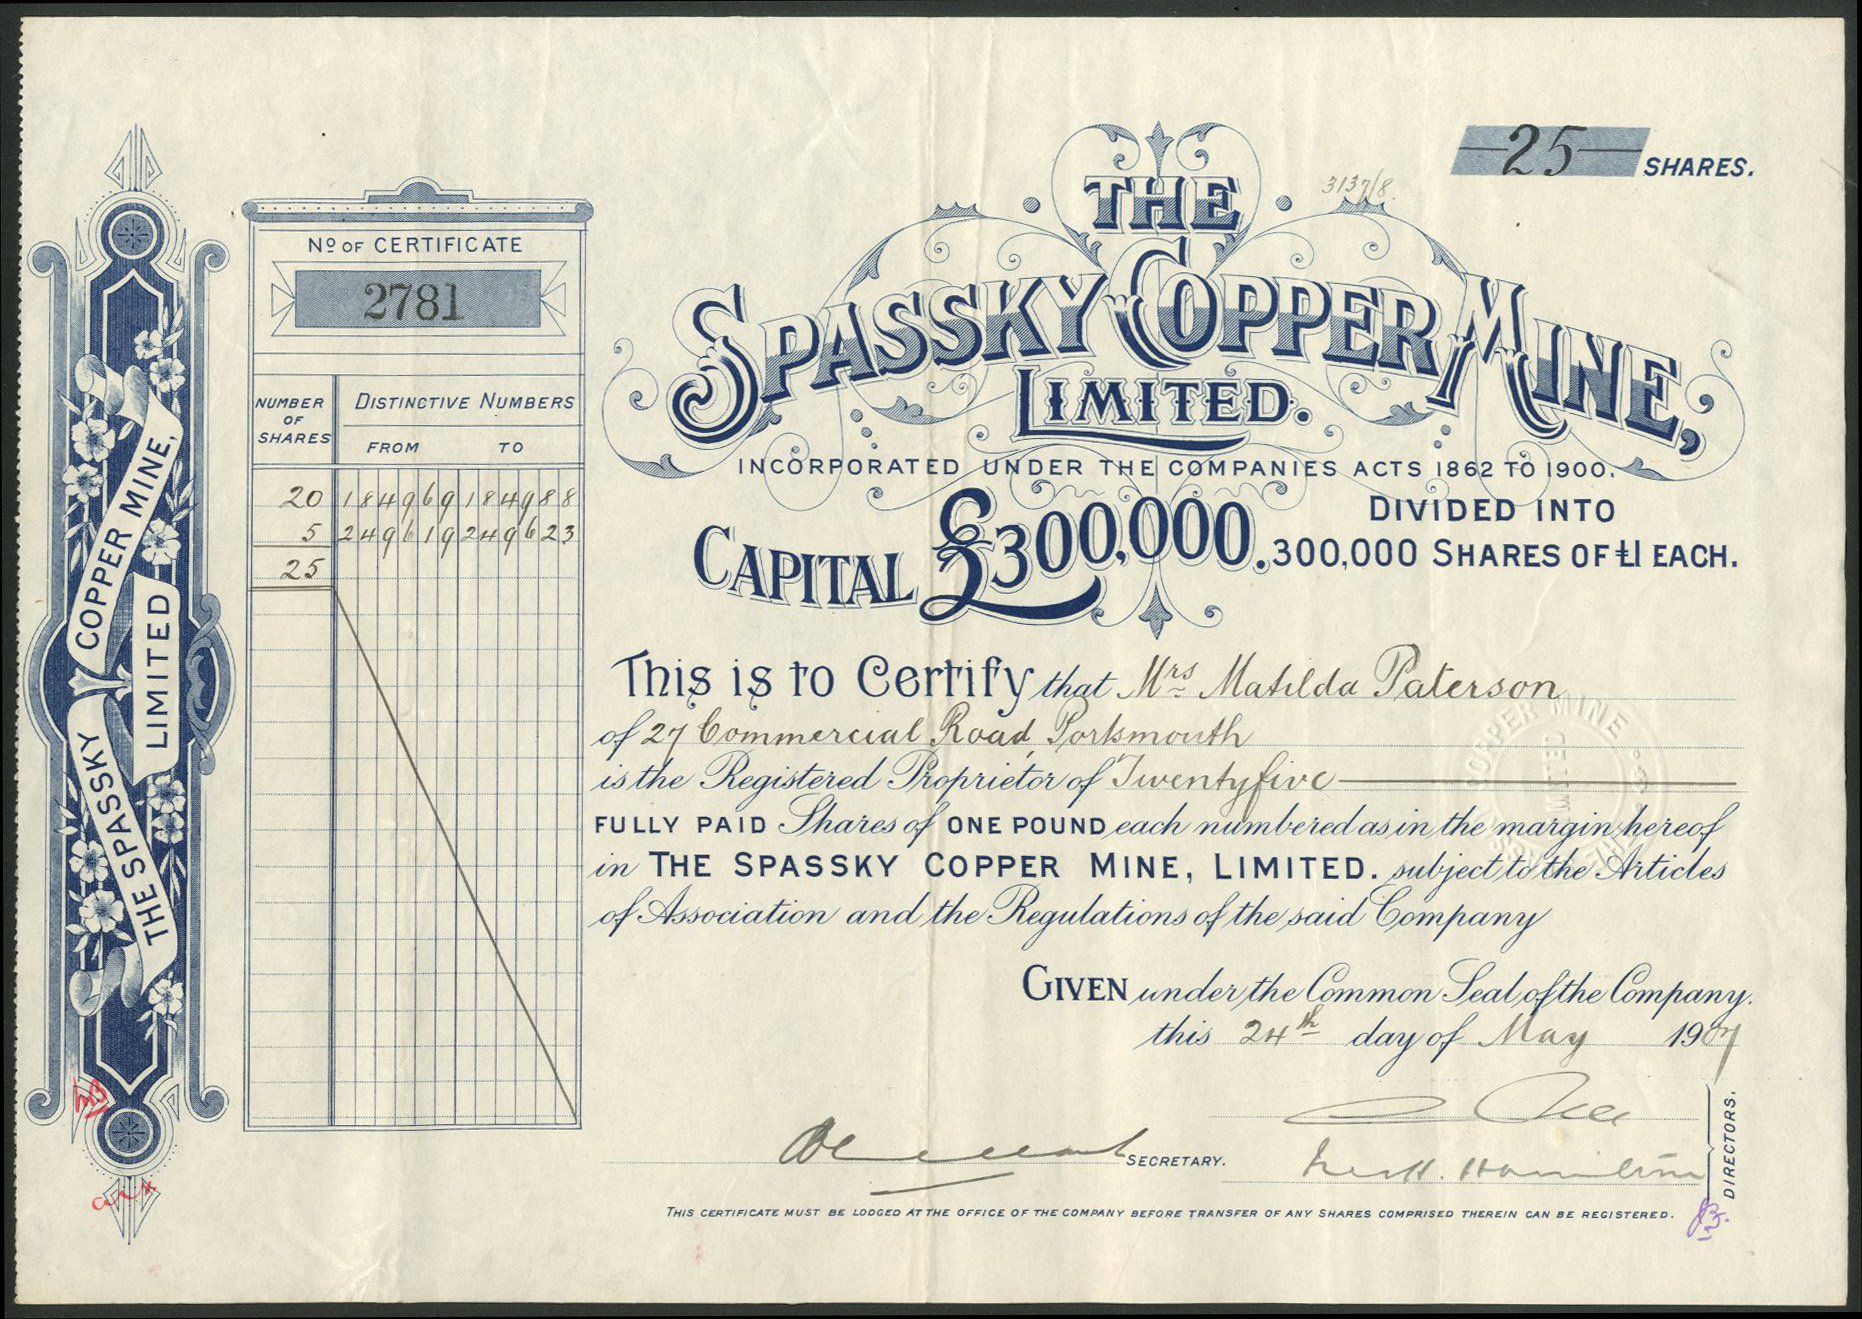 25 SHARES.
3137/8
THE
SPASSKY COPPER MINE,
LIMITED.
INCORPORATED UNDER THE COMPANIES ACTS 1862 TO 1900.
CAPITAL £300,000. DIVIDED INTO
300,000 SHARES OF £1 EACH.
THE SPASSKY COPPER MINE, LIMITED
No OF CERTIFICATE
2781
NUMBER OF SHARES DISTINCTIVE NUMBERS
FROM TO
20 184969 184988
5 249619 249623
25
This is to Certify that Mrs Matilda Paterson
of 27 Commercial Road, Portsmouth
is the Registered Proprietor of Twentyfive
FULLY PAID Shares of ONE POUND each numbered as in the margin hereof
in THE SPASSKY COPPER MINE, LIMITED. subject to the Articles
of Association and the Regulations of the said Company
GIVEN under the Common Seal of the Company.
this 24th day of May 1907
SECRETARY.
Hamilton
DIRECTORS.
THIS CERTIFICATE MUST BE LODGED AT THE OFFICE OF THE COMPANY BEFORE TRANSFER OF ANY SHARES COMPRISED THEREIN CAN BE REGISTERED.